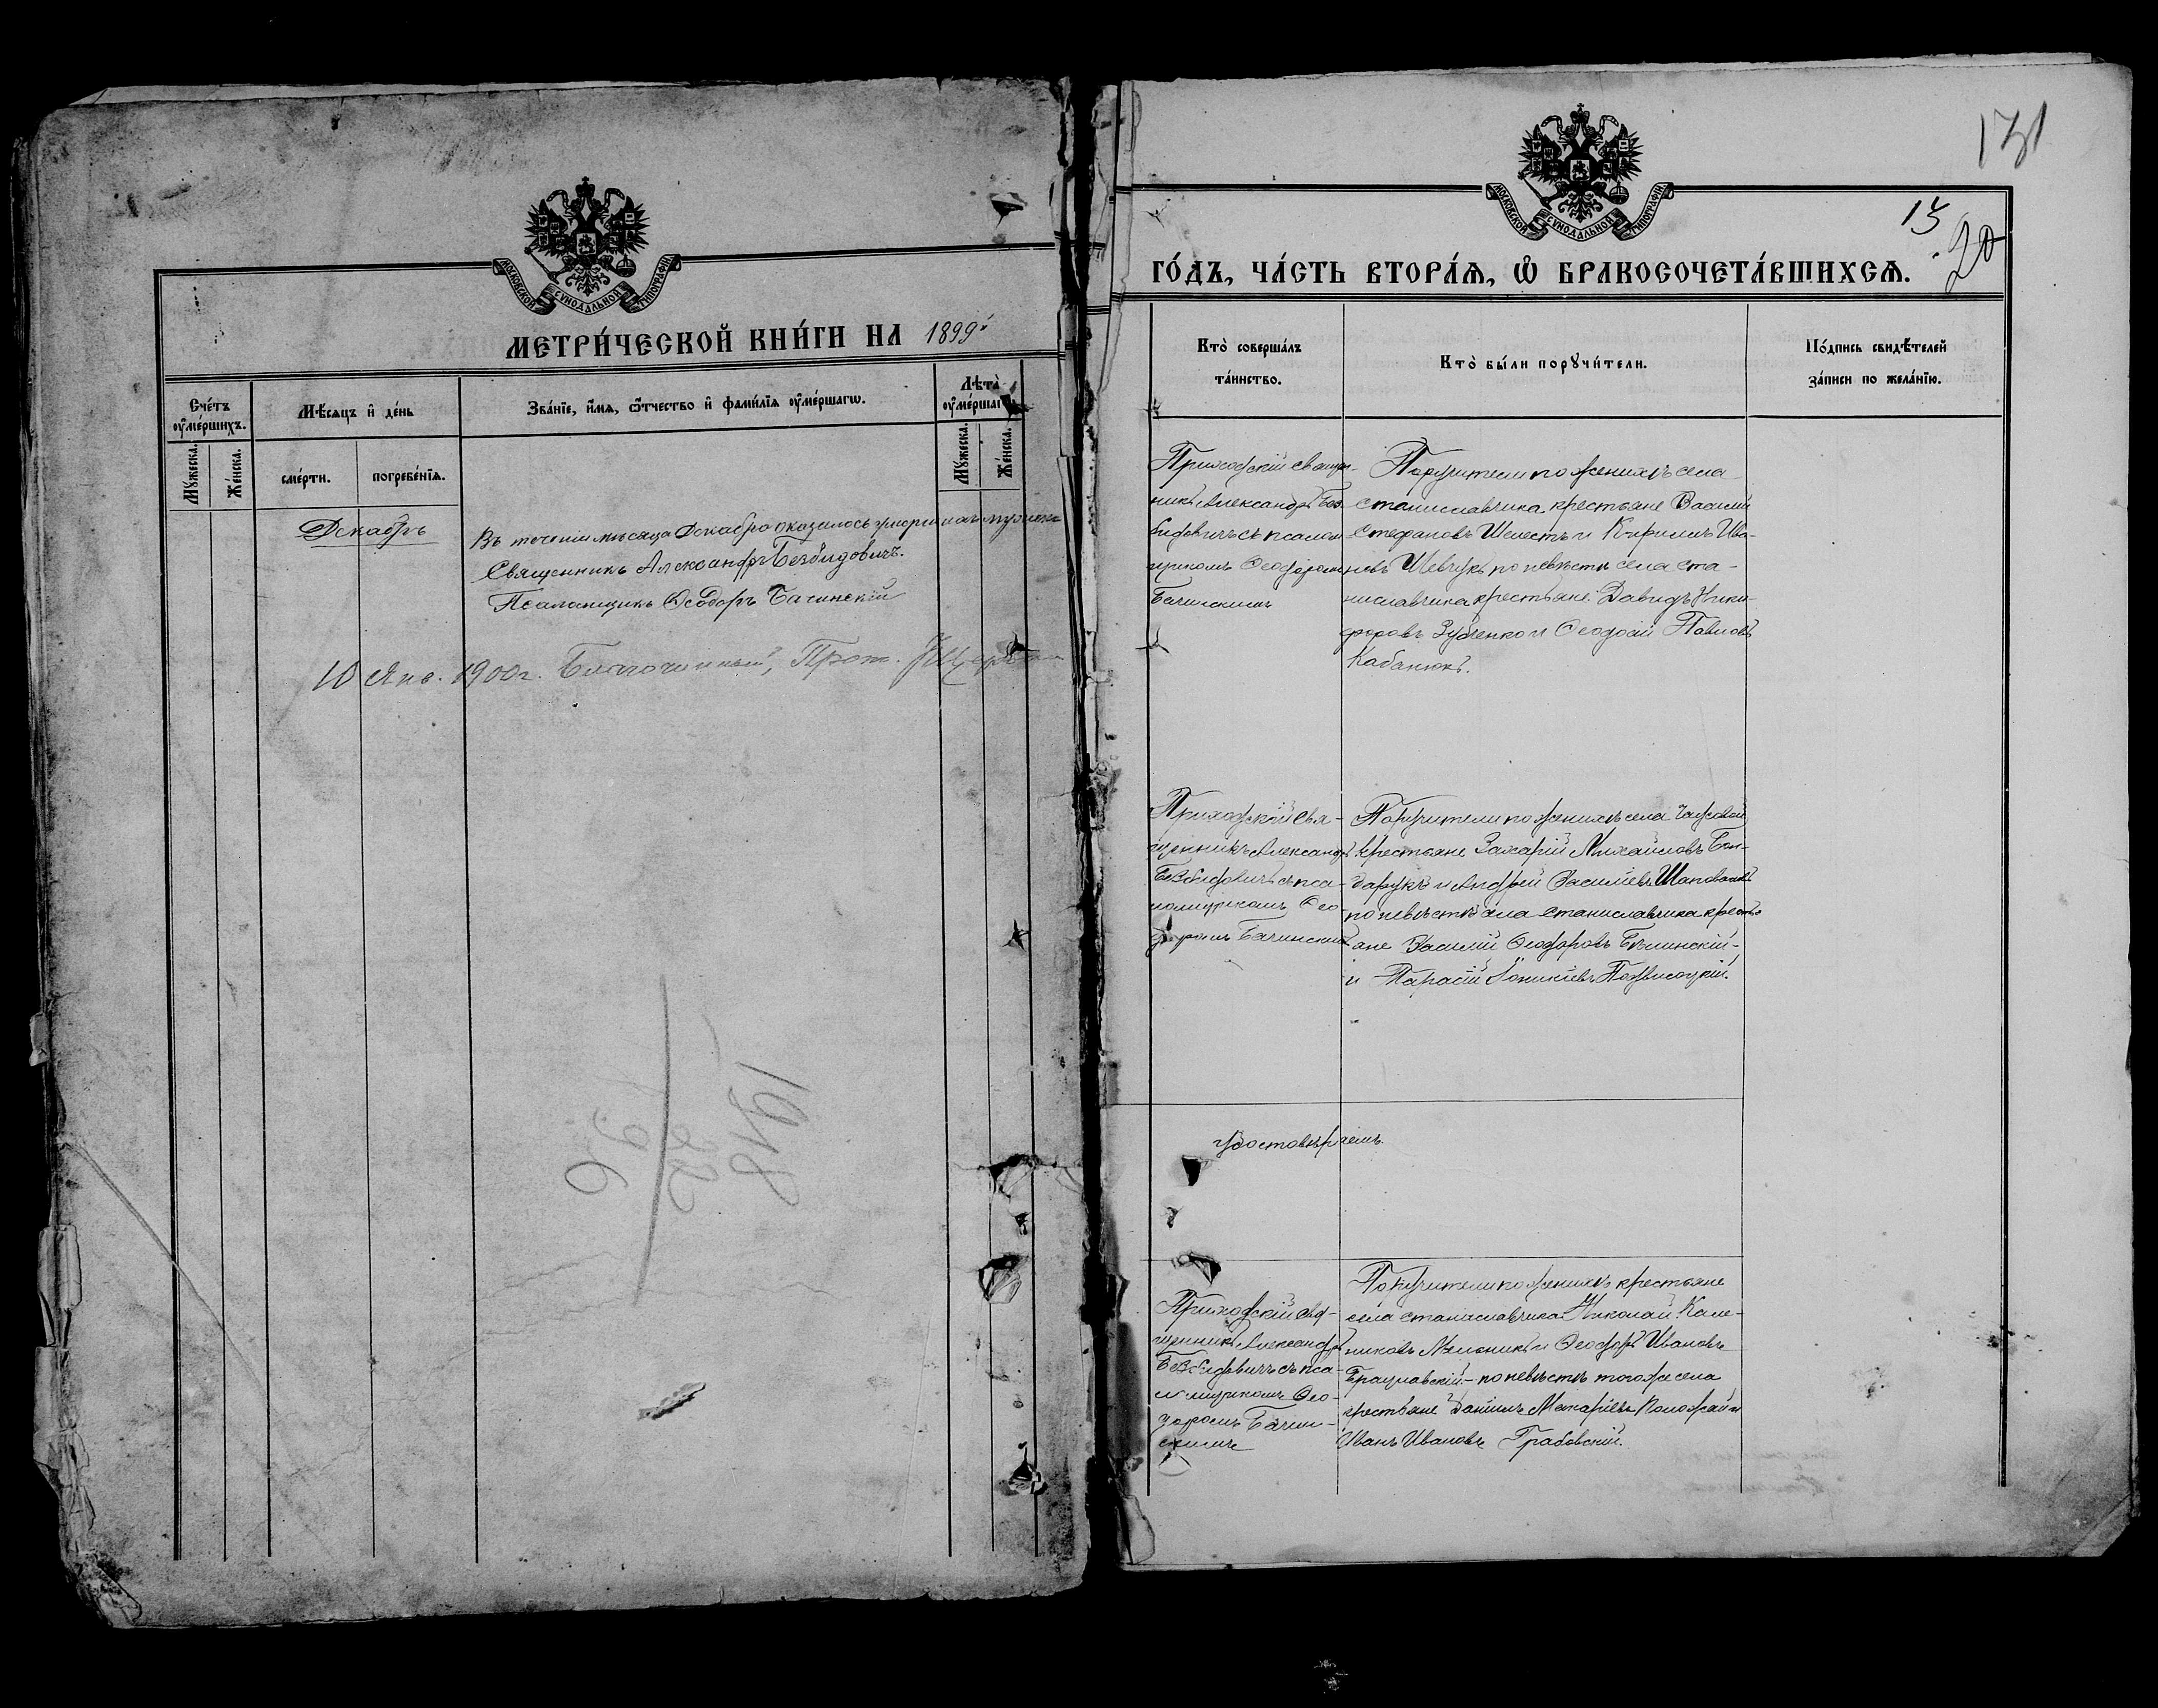 МОСКОВСКОЙ СѴНОДАЛЬНОЙ ТИПОГРАФІИ
МЕТРИ́ЧЕСКОЙ КНИ́ГИ НА 1899й
Сче́тъ ᲂу҆ме́ршихъ.
Мꙋ́жеска.
Же́нска.
Мѣ́сяцъ и҆ де́нь
сме́рти.
погребе́нїѧ.
Зва́нїе, и҆́мѧ, ѻ҆́тчество и҆ фами́лїѧ ᲂу҆ме́ршагѡ.
Лѣта̀ ᲂу҆ме́ршаг
Мꙋ́жеска.
Же́нска.
Декабрь
Въ теченіи мѣсяца Декабря оказалось умершихъ мужеска
Священникъ Александръ Безвидовичъ.
Псаломщикъ Ѳеодоръ Бачинскій
10 Янв. 1900г. Благочинный, Прот.
1918
22
96
131
МОСКОВСКОЙ СѴНОДАЛЬНОЙ ТИПОГРАФІИ
15
20
ГО́ДЪ, ЧА́СТЬ ВТОРА́Ѧ, Ѽ БРАКОСОЧЕТА́ВШИХСѦ.
Кто̀ соверша́лъ та́инство.
Кто̀ бы́ли порꙋчи́тели.
По́дпись свидѣ́телей за́писи по жела́нїю.
Приходскій священ-
никъ Александръ Без-
видовичъ съ псалом-
щикомъ Ѳеодоромъ
Бачинскимъ
Поручители по женихѣ села
Станиславчика крестьяне Василій
Стефановъ Шелестъ и Кириллъ Ива-
новъ Шевчукъ по невѣстѣ села Ста-
ниславчика крестьяне: Давидъ Ники-
форовъ Зубленко и Ѳеодосій Павловъ
Кабанюкъ.
Приходскій свя-
щенникъ Александръ
Безвидовичъ съ пса-
ломщикомъ Ѳео-
доромъ Бачинскимъ
Поручители по женихѣ села
крестьяне Захарій Михайловъ Бон-
дарукъ и Андрей Василіевъ Шаповалъ
по невѣстѣ села Станиславчика кресть-
яне Василій Ѳеодоровъ Бѣлинскій
и Тарасій Іоникіевъ Подвисоцкій.
Удостовѣряемъ
Приходскій свя-
щенникъ Александръ
Безвидовичъ съ пса-
ломщикомъ Ѳео-
доромъ Бачин-
скимъ
Поручители по женихѣ крестьяне
села Станиславчика Николай Кале-
никовъ Мельникъ и Ѳеодоръ Ивановъ
Брацлавскій - по невѣстѣ того же села
крестьяне Даніилъ Макаріевъ Коложай и
Иванъ Ивановъ Грабовскій.